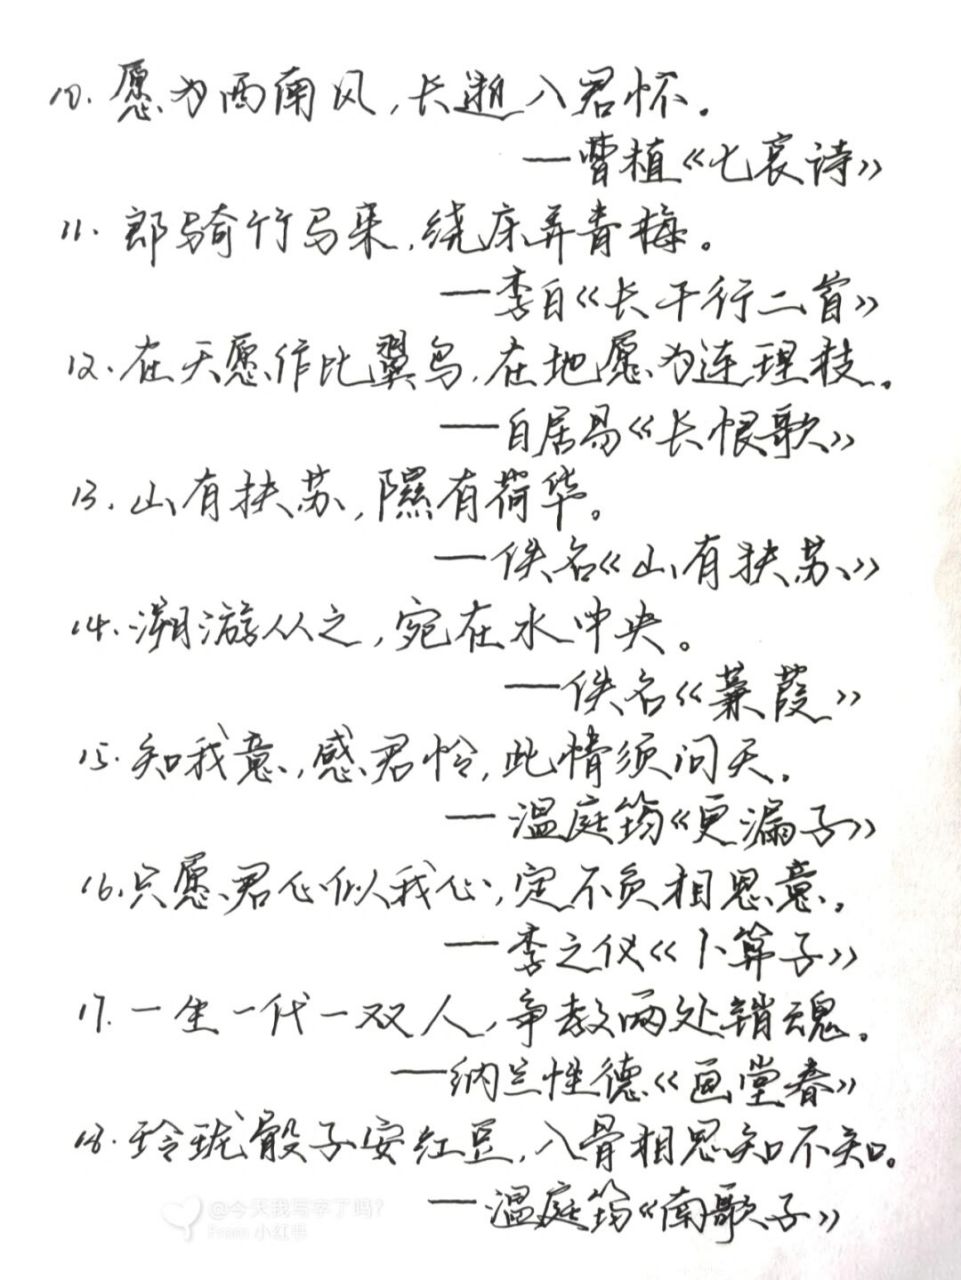 10.愿为西南风,长逝入君怀。
—曹植《七哀诗》
11.郎骑竹马来,绕床弄青梅。
—李白《长干行二首》
12.在天愿作比翼鸟,在地愿为连理枝。
—白居易《长恨歌》
13.山有扶苏,隰有荷华。
—佚名《山有扶苏》
14.溯游从之,宛在水中央。
—佚名《蒹葭》
15.知我意,感君怜,此情须问天。
—温庭筠《更漏子》
16.只愿君心似我心,定不负相思意。
—李之仪《卜算子》
17.一生一代一双人,争教两处销魂。
—纳兰性德《画堂春》
18.玲珑骰子安红豆,入骨相思知不知。
—温庭筠《南歌子》
@今天我写字了吗?
From 小红书